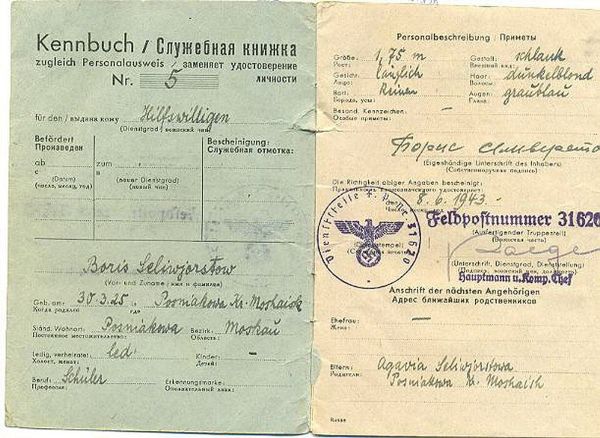 Kennbuch / Служебная книжка
zugleich Personalausweis / заменяет удостоверение
Nr. 5 личности
für den / выдана кому Hilfswilligen
(Dienstgrad / воинский чин)
Befördert
Произведен
ab zum
(Datum) (neuer Dienstgrad)
(число, месяц, год) (новый чин)
Bescheinigung:
Служебная отметка:
Boris Seliwjorstow
(Vor- und Zuname / имя и фамилия)
Geb. am 30.3.25. Posniakowa Kr. Moshaisk
Когда родился где
Ständ. Wohnort Posniakowa Bezirk: Moskau
Постоянное местожительство: Область:
Ledig, verheiratet: led. Kinder: —
Холост, женат: Детей:
Beruf: Schüler Erkennungsmarke:
Профессия:
Personalbeschreibung / Приметы
Größe: 1,75 m Gestalt: schlank
Рост: Внешний вид:
Gesicht: länglich Haar: dunkelblond
Лицо: Волосы:
Bart: Augen: graublau
Борода, усы: Глаза:
Besond. Kennzeichen: —
Особые приметы:
Борис
(Eigenhändige Unterschrift des Inhabers)
(Собственноручная подпись)
Die Richtigkeit obiger Angaben bescheinigt:
Правильность вышеуказанного удостоверяет:
8. 6. 1943.
Dienststelle F. 31620
Feldpostnummer 31620
(Ausfertigender Truppenteil)
(Воинская часть)
(Unterschrift, Dienstgrad, Dienststellung)
Hauptmann u. Komp. Chef
Anschrift der nächsten Angehörigen
Адрес ближайших родственников
Ehefrau: —
Жена:
Eltern: Agavia Seliwjorstowa
Родители: Posniakowa Kr. Moshaisk